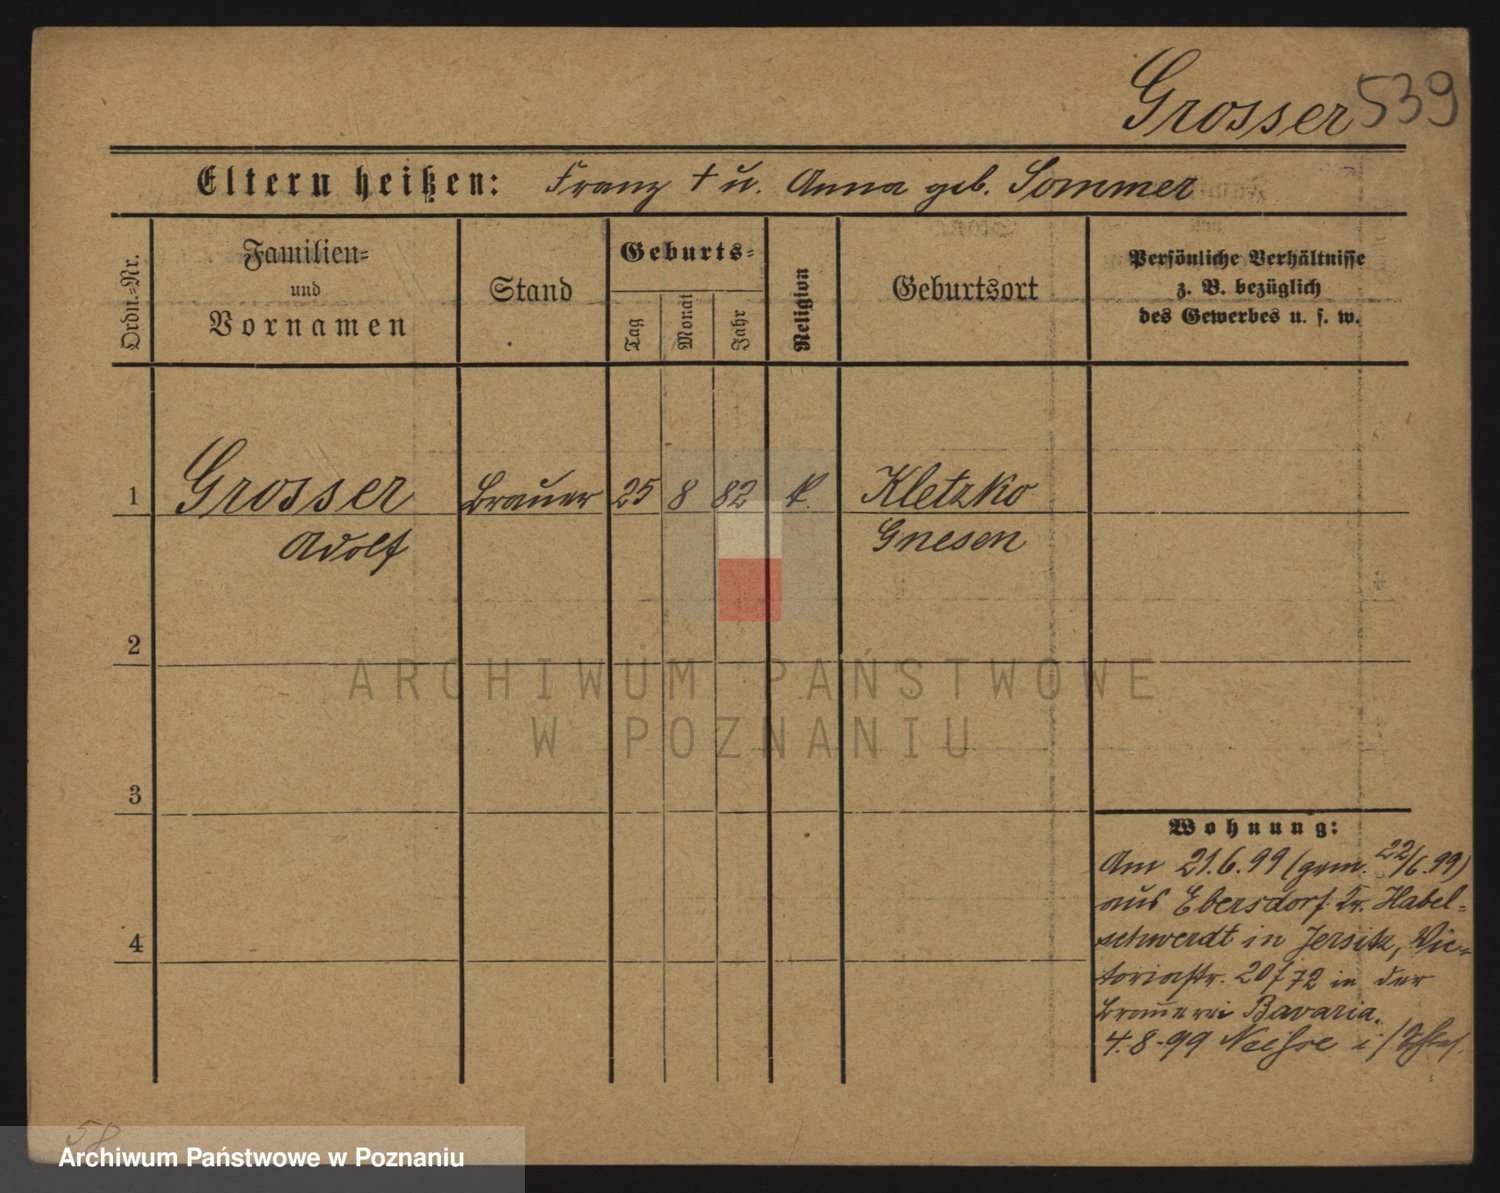 Grosser 539
Eltern heißen: Franz † u. Anna geb. Sommer
Ordn.-Nr.
Familien-
und
Vornamen
Stand
Geburts-
Tag
Monat
Jahr
Religion
Geburtsort
Persönliche Verhältnisse
z. B. bezüglich
des Gewerbes u. s. w.
1 Grosser Brauer 25 8 82 k. Kletzko
Adolf Gnesen
2
3
4
ARCHIWUM PAŃSTWOWE
W POZNANIU
Wohnung:
Am 21.6.99 (gem. 22/6.99)
aus Ebersdorf Kr. Habel-
schwerdt in Jersitz, Vic-
toriastr. 20/72 in der
Brauerei Bavaria.
4.8.99 Neisse i/Schles.
58
Archiwum Państwowe w Poznaniu